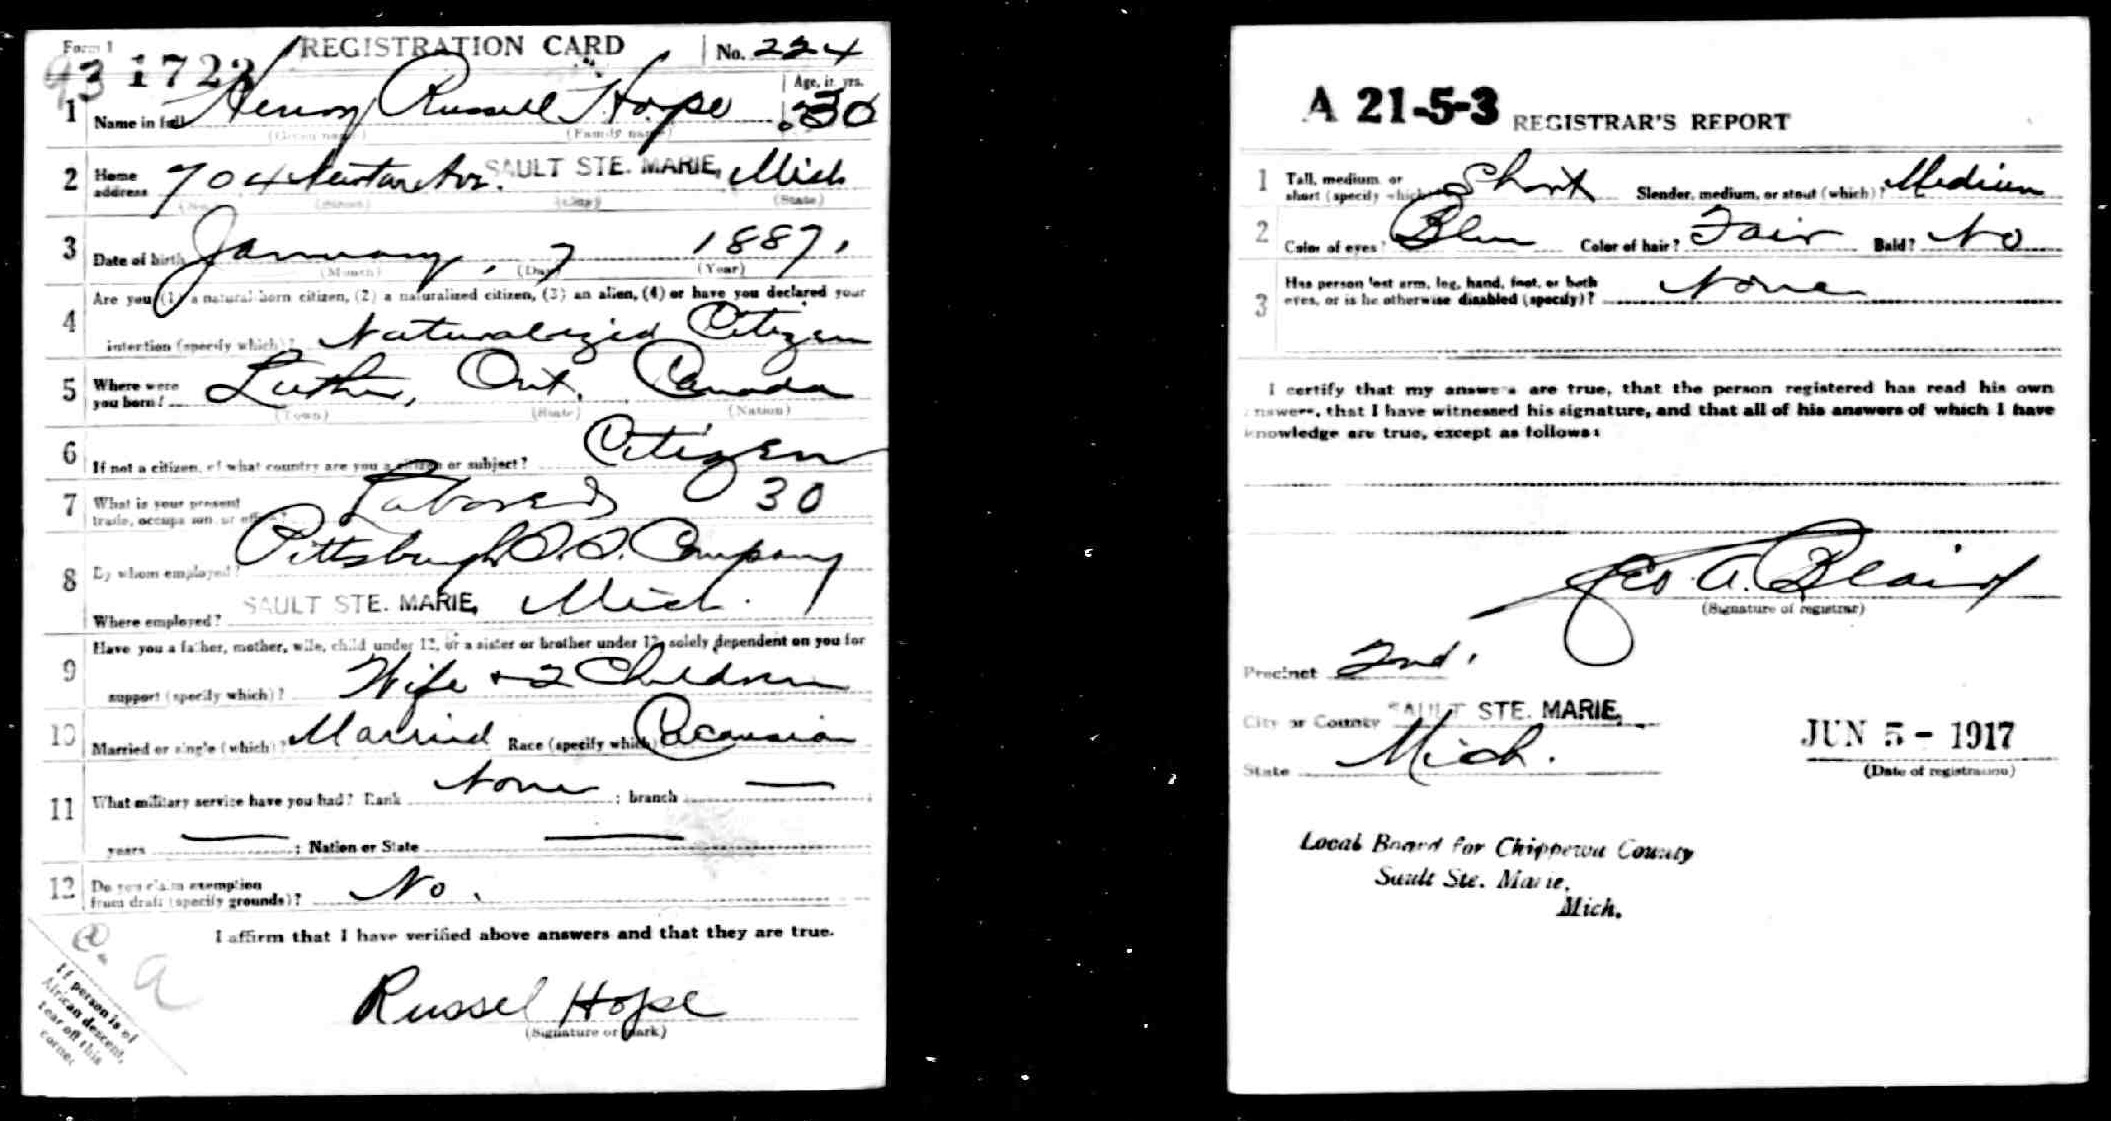 Form 1
REGISTRATION CARD
No. 224
93 1722
Age, in yrs.
1 Name in full Henry Russell Hope 30
(Given name) (Family name)
2 Home address 704 Ave. SAULT STE. MARIE, Mich
(No.) (Street) (City) (State)
3 Date of birth January, 7 1887.
(Month) (Day) (Year)
Are you (1) a natural born citizen, (2) a naturalized citizen, (3) an alien, (4) or have you declared your
4 intention (specify which)? Naturalized Citizen
5 Where were you born? Luther, Ont, Canada
(Town) (State) (Nation)
6 If not a citizen, of what country are you a citizen or subject? Citizen
7 What is your present trade, occupation, or office? Laborer 30
8 By whom employed? Pittsburgh S. S. Company
Where employed? SAULT STE. MARIE, Mich.
Have you a father, mother, wife, child under 12, or a sister or brother under 12, solely dependent on you for
9 support (specify which)? Wife + 2 Children
10 Married or single (which)? Married Race (specify which)? Cacausian
11 What military service have you had? Rank None ; branch —
years — ; Nation or State —
12 Do you claim exemption from draft (specify grounds)? No.
I affirm that I have verified above answers and that they are true.
Russel Hope
(Signature or mark)
If person is of
African descent,
tear off this
corner
a
A 21-5-3 REGISTRAR'S REPORT
1 Tall, medium, or short (specify which)? Short Slender, medium, or stout (which)? Medium
2 Color of eyes? Blue Color of hair? Fair Bald? No
3 Has person lost arm, leg, hand, foot, or both
eyes, or is he otherwise disabled (specify)? None
I certify that my answers are true, that the person registered has read his own
answers, that I have witnessed his signature, and that all of his answers of which I have
knowledge are true, except as follows:
Geo. A. Blair
(Signature of registrar)
Precinct 2nd.
City or County SAULT STE. MARIE,
State Mich.
JUN 5 - 1917
(Date of registration)
Local Board for Chippewa County
Sault Ste. Marie,
Mich.